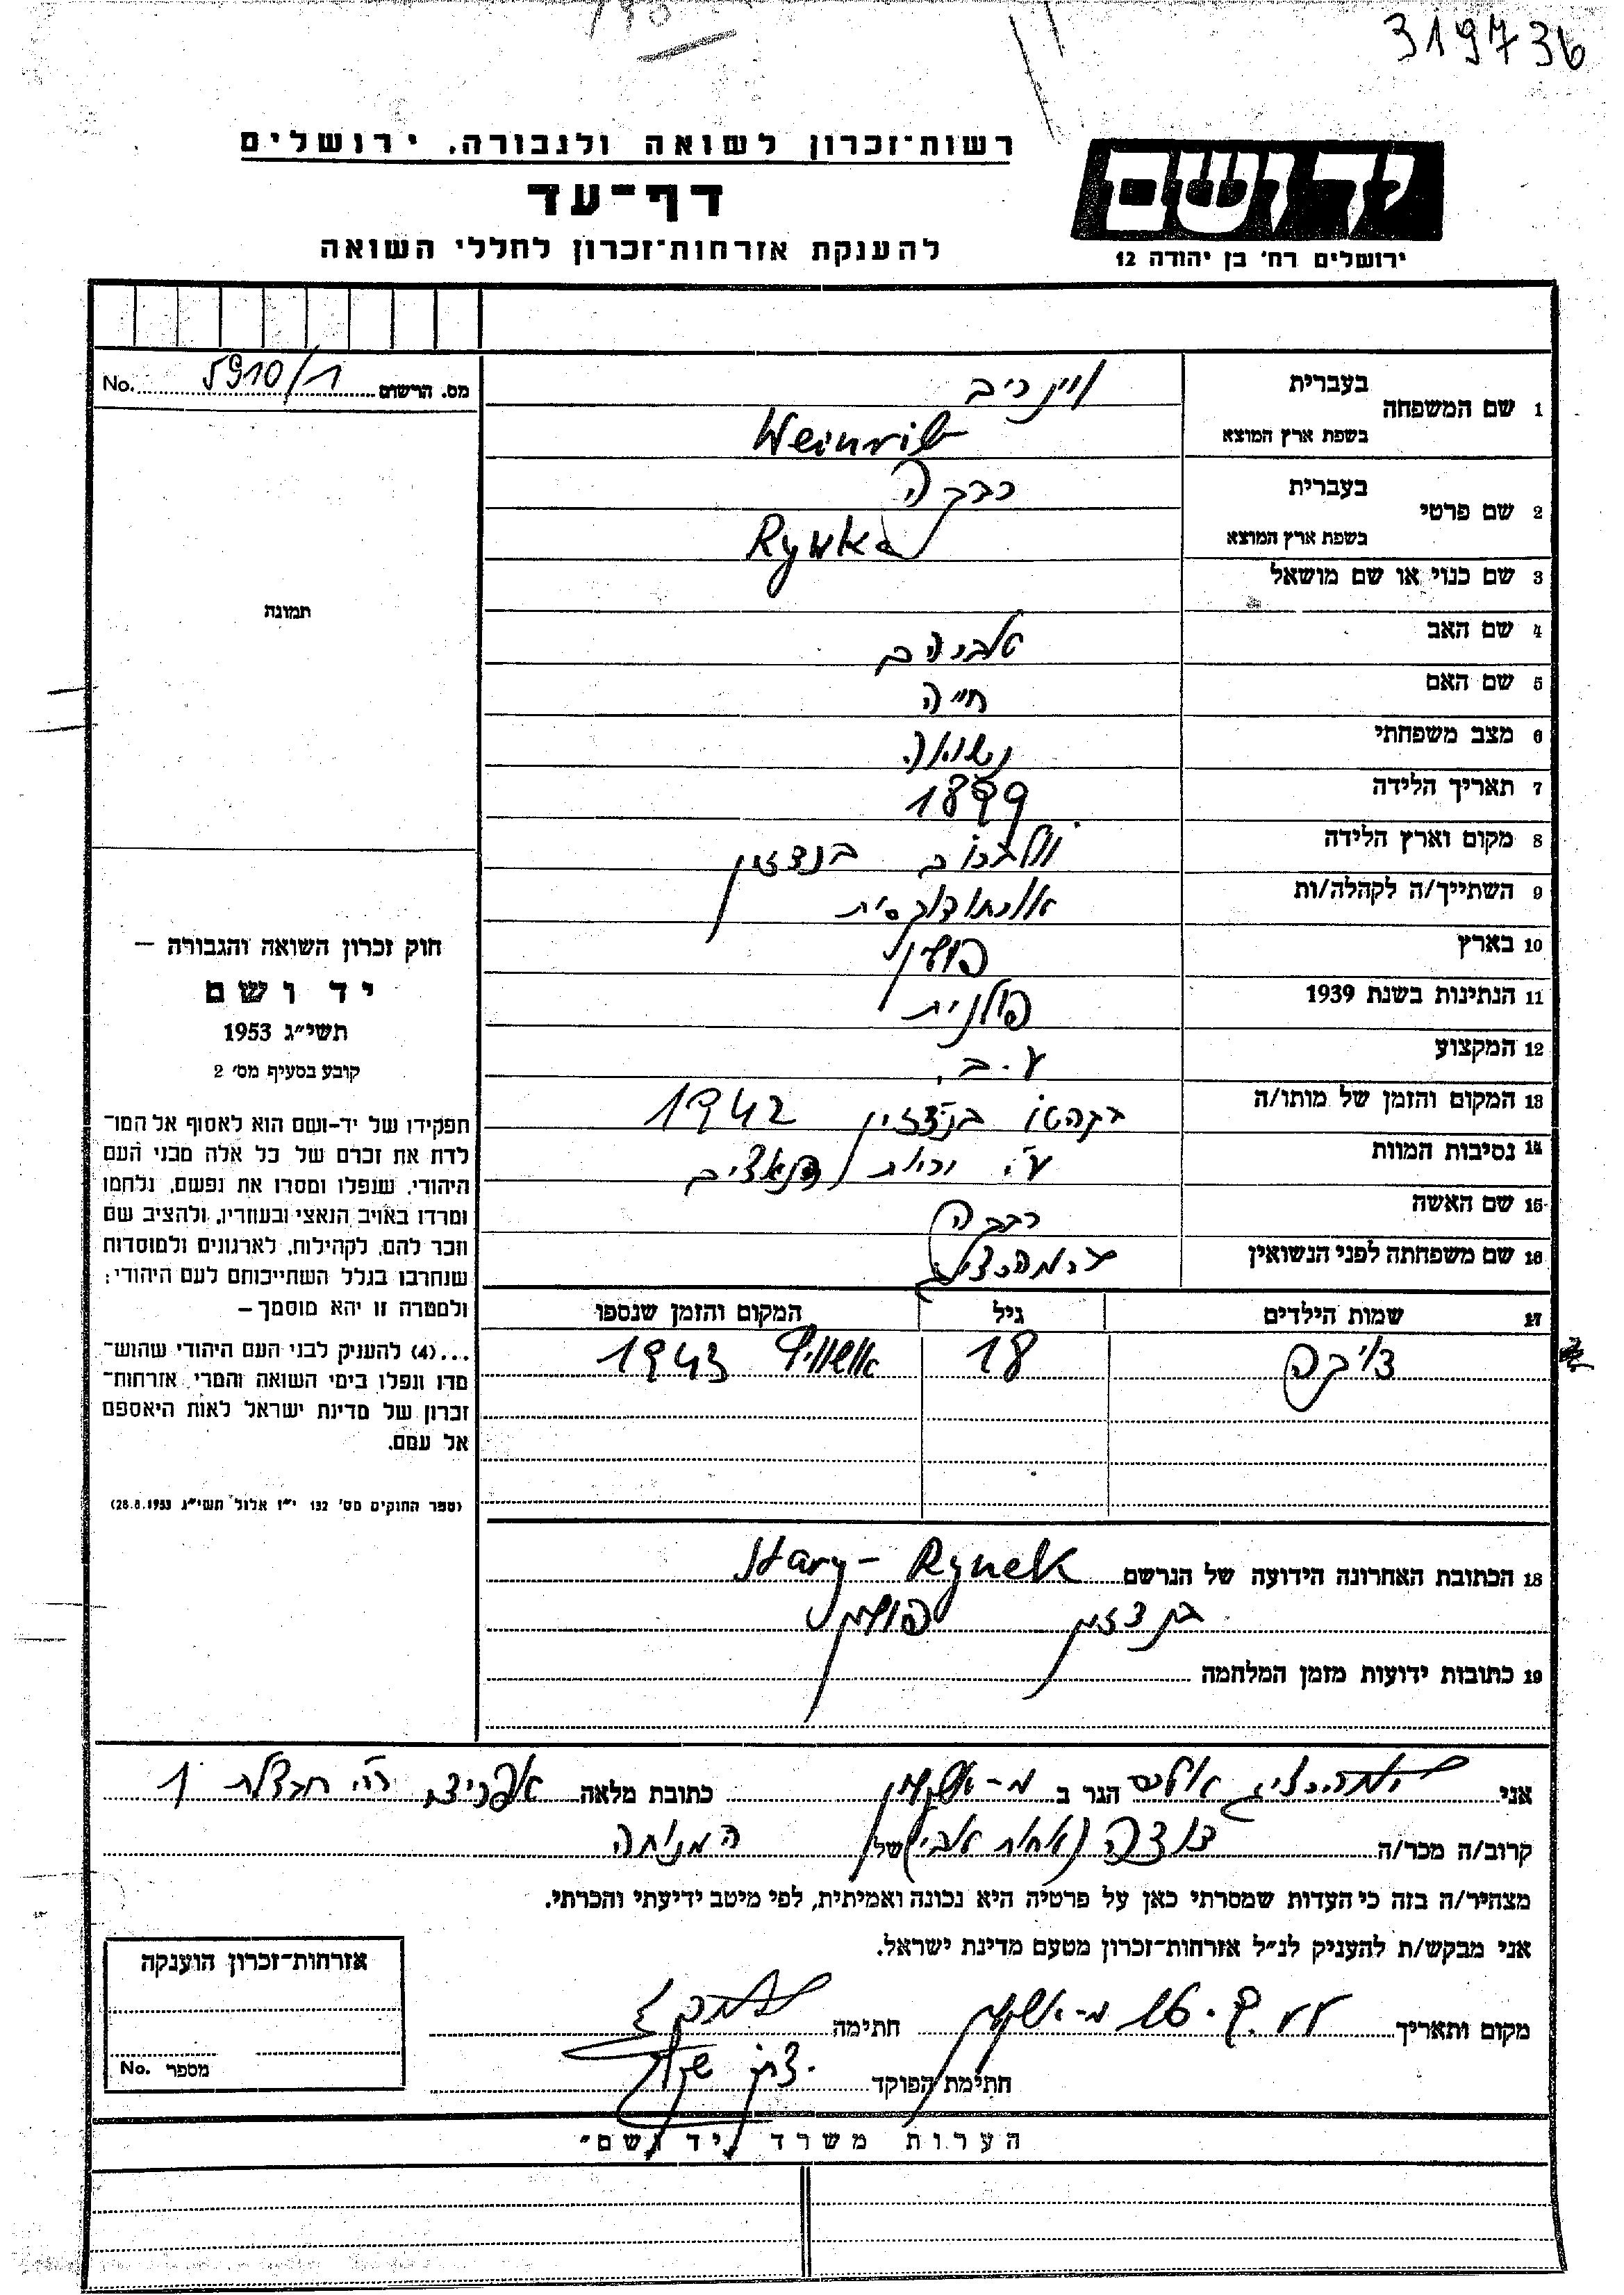 319736
רשות־זכרון לשואה ולגבורה, ירושלים
דף־עד
להענקת אזרחות־זכרון לחללי השואה
יד ושם
ירושלים רח' בן יהודה 12
מס. הרשום 5910/1 No.
1 שם המשפחה
בעברית
ויינריב
בשפת ארץ המוצא
Weinrib
2 שם פרטי
בעברית
רבקה
בשפת ארץ המוצא
Rywka
3 שם כנוי או שם מושאל
4 שם האב
5 שם האם חייה
6 מצב משפחתי נשואה
7 תאריך הלידה 1899
8 מקום וארץ הלידה בנדזין
9 השתייך/ה לקהלה/ות אורתודוקסית
10 בארץ פולין
11 הנתינות בשנת 1939 פולנית
12 המקצוע ע.ב.
13 המקום והזמן של מותו/ה בנדזין 1942
14 נסיבות המוות ע"י יריות הנאצים
15 שם האשה רבקה
16 שם משפחתה לפני הנשואין
17 שמות הילדים גיל המקום והזמן שנספו
18 אושוויץ 1943
18 הכתובת האחרונה הידועה של הנרשם Stary-Rynek
בנדזין פולין
19 כתובות ידועות מזמן המלחמה
תמונה
חוק זכרון השואה והגבורה –
יד ושם
תשי״ג 1953
קובע בסעיף מס׳ 2
תפקידו של יד-ושם הוא לאסוף אל המו־
לדת את זכרם של כל אלה מבני העם
היהודי, שנפלו ומסרו את נפשם, נלחמו
ומרדו באויב הנאצי ובעוזריו, ולהציב שם
וזכר להם, לקהילות, לארגונים ולמוסדות
שנחרבו בגלל השתייכותם לעם היהודי;
ולמטרה זו יהא מוסמך –
...(4) להעניק לבני העם היהודי שהוש־
מדו ונפלו בימי השואה והמרי אזרחות־
זכרון של מדינת ישראל לאות היאספם
אל עמם.
(ספר החוקים מס׳ 132 י״ז אלול תשי״ג 28.8.1953)
אני הגר ב מ-אשקלון כתובת מלאה אפרידר רח' חבצלת 1
קרוב/ה מכר/ה דודה (אחות אבי) של המנוחה
מצהיר/ה בזה כי העדות שמסרתי כאן על פרטיה היא נכונה ואמיתית, לפי מיטב ידיעתי והכרתי.
אני מבקש/ת להעניק לנ״ל אזרחות־זכרון מטעם מדינת ישראל.
מקום ותאריך מ-אשקלון חתימה
חתימת הפוקד
אזרחות־זכרון הוענקה
מספר No.
הערות משרד "יד ושם"